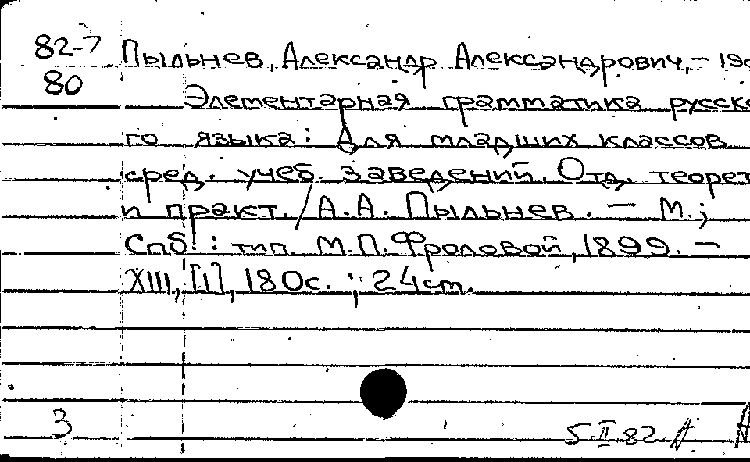 82-7 Пыльнев, Александр Александрович, – 19
80 Элементарная грамматика русск
го языка: Для младших классов
сред. учеб. заведений. Отд. теорет
и практ. / А.А. Пыльнев. – М.;
Спб.: тип. М.П. Фроловой, 1899. –
XIII, [1], 180с. ; 24cm.
3 5.II.82.